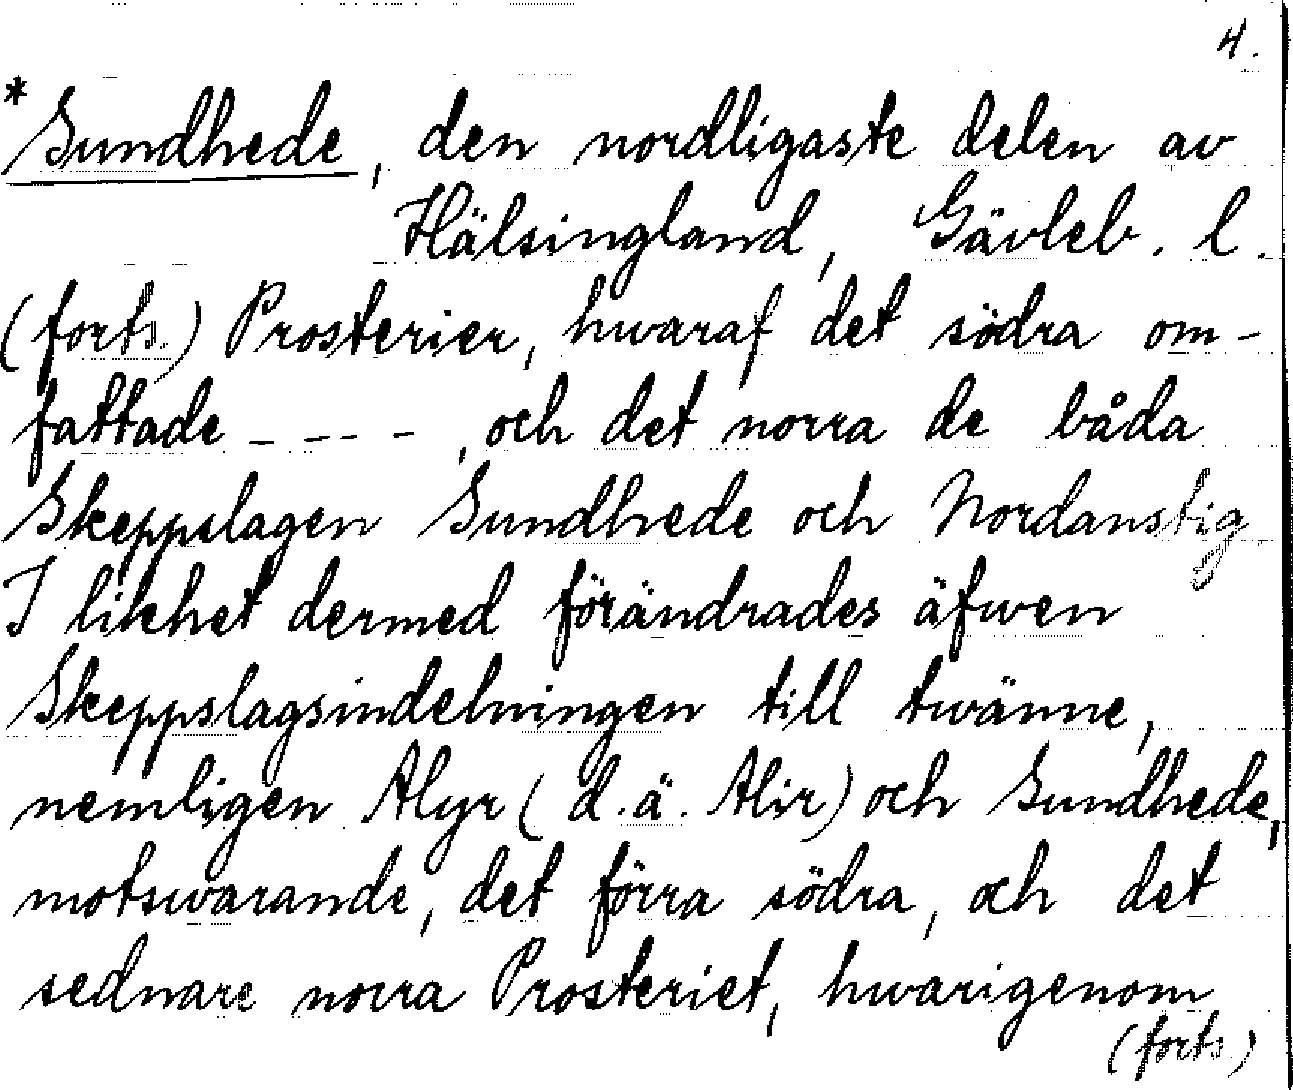 4.
*Sundhede, den nordligaste delen av
Hälsingland, Gävleb. l.
(forts.) Prosterier, hwaraf det södra om-
fattade - - - - , och det norra de båda
Skeppslagen Sundhede och Nordanstig
I likhet dermed förändrades äfwen
Skeppslagsindelningen till twänne,
nemligen Alyr (d.ä. Alir) och Sundhede,
motswarande, det förra södra, och det
sednare norra Prosteriet, hwarigenom
(forts)